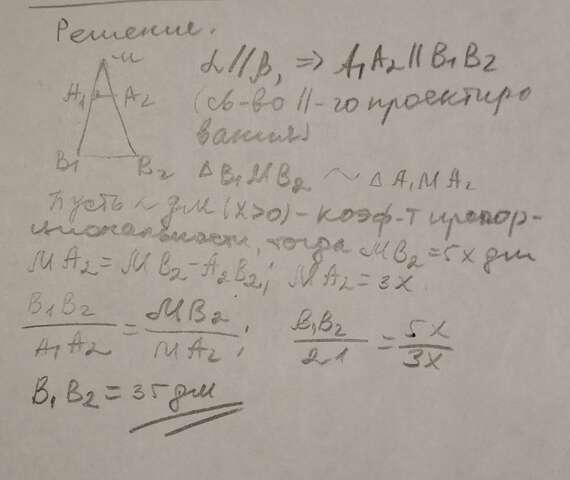 Решение.
M
A1 A2
B1 B2
α//β, => A1A2//B1B2
(св-во //-го проектиро
вания)
△ B1MB2 ~ △ A1MA2
Пусть x дм (x>0) - коэф-т пропор-
циональности, тогда MB2=5x дм
MA2=MB2-A2B2; MA2=3x
B1B2/A1A2=MB2/MA2; B1B2/21=5x/3x
B1B2=35дм